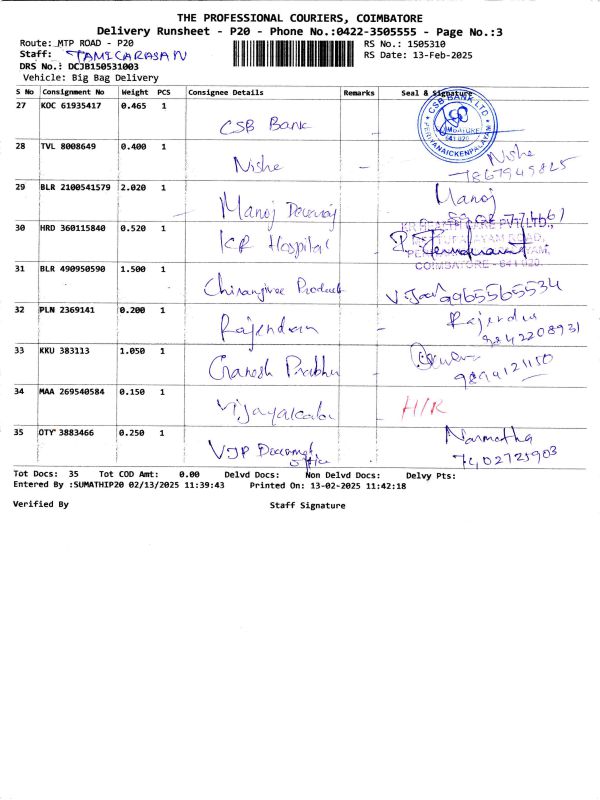 THE PROFESSIONAL COURIERS, COIMBATORE
Delivery Runsheet - P20 - Phone No.:0422-3505555 - Page No.:3
Route: MTP ROAD - P20 RS No.: 1505310
Staff: TAMILARASAN RS Date: 13-Feb-2025
DRS No.: DCJB150531003
Vehicle: Big Bag Delivery
S No Consignment No Weight PCS Consignee Details Remarks Seal & Signature
27 KOC 61935417 0.465 1 CSB Bank CSB BANK LTD. COIMBATORE 641 020 PERIYANAICKENPALAYAM
28 TVL 8008649 0.400 1 Nishe - Nishe
7867949825
29 BLR 2100541579 2.020 1 Manoj - Manoj
30 HRD 360115840 0.520 1 KR Hospital - KR HEALTH CARE PVT LTD.,
COIMBATORE - 641 020.
31 BLR 490950590 1.500 1 Chiranjivee Product - 9965565534
32 PLN 2369141 0.200 1 Rajendran - Rajendran
9842208931
33 KKU 383113 1.050 1 Ganesh Prabhu -
9894121150
34 MAA 269540584 0.150 1 - H/R
35 OTY 3883466 0.250 1 VJP Document office - Narmatha
7402725903
Tot Docs: 35 Tot COD Amt: 0.00 Delvd Docs: Non Delvd Docs: Delvy Pts:
Entered By :SUMATHIP20 02/13/2025 11:39:43 Printed On: 13-02-2025 11:42:18
Verified By Staff Signature